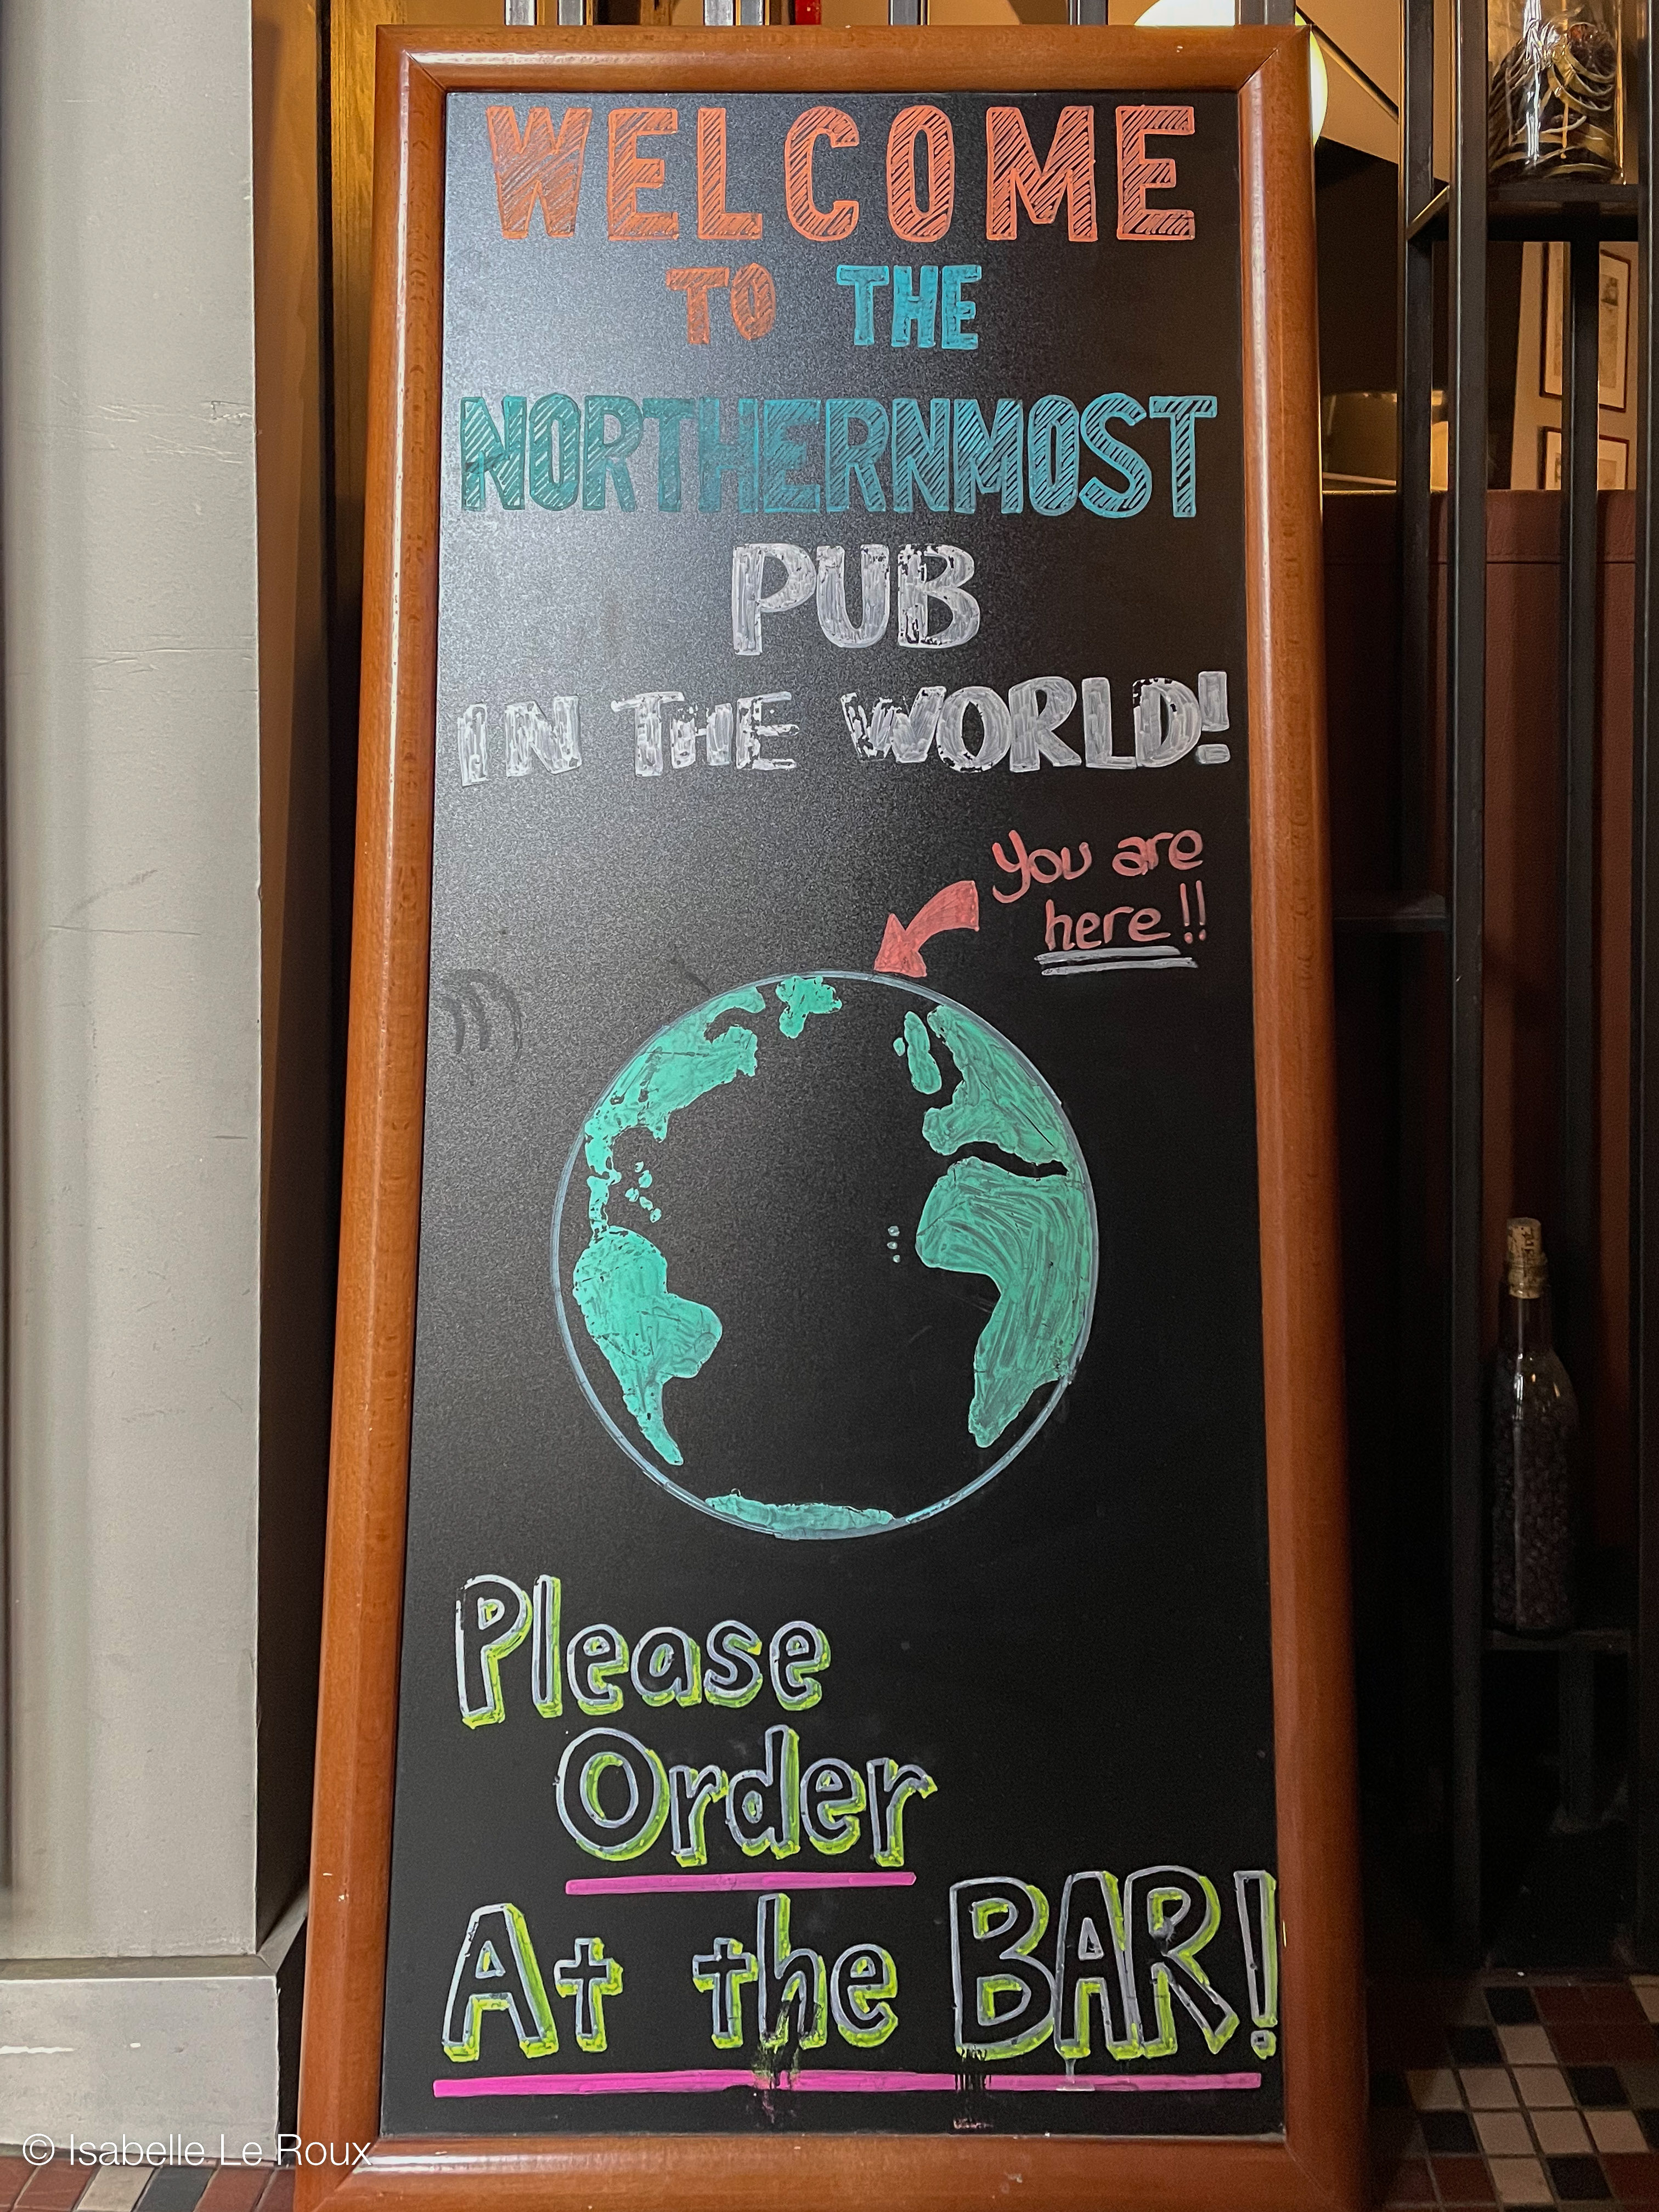 WELCOME
TO THE
NORTHERNMOST
PUB
IN THE WORLD!
You are
here!!
Please
Order
At the BAR!
© Isabelle Le Roux